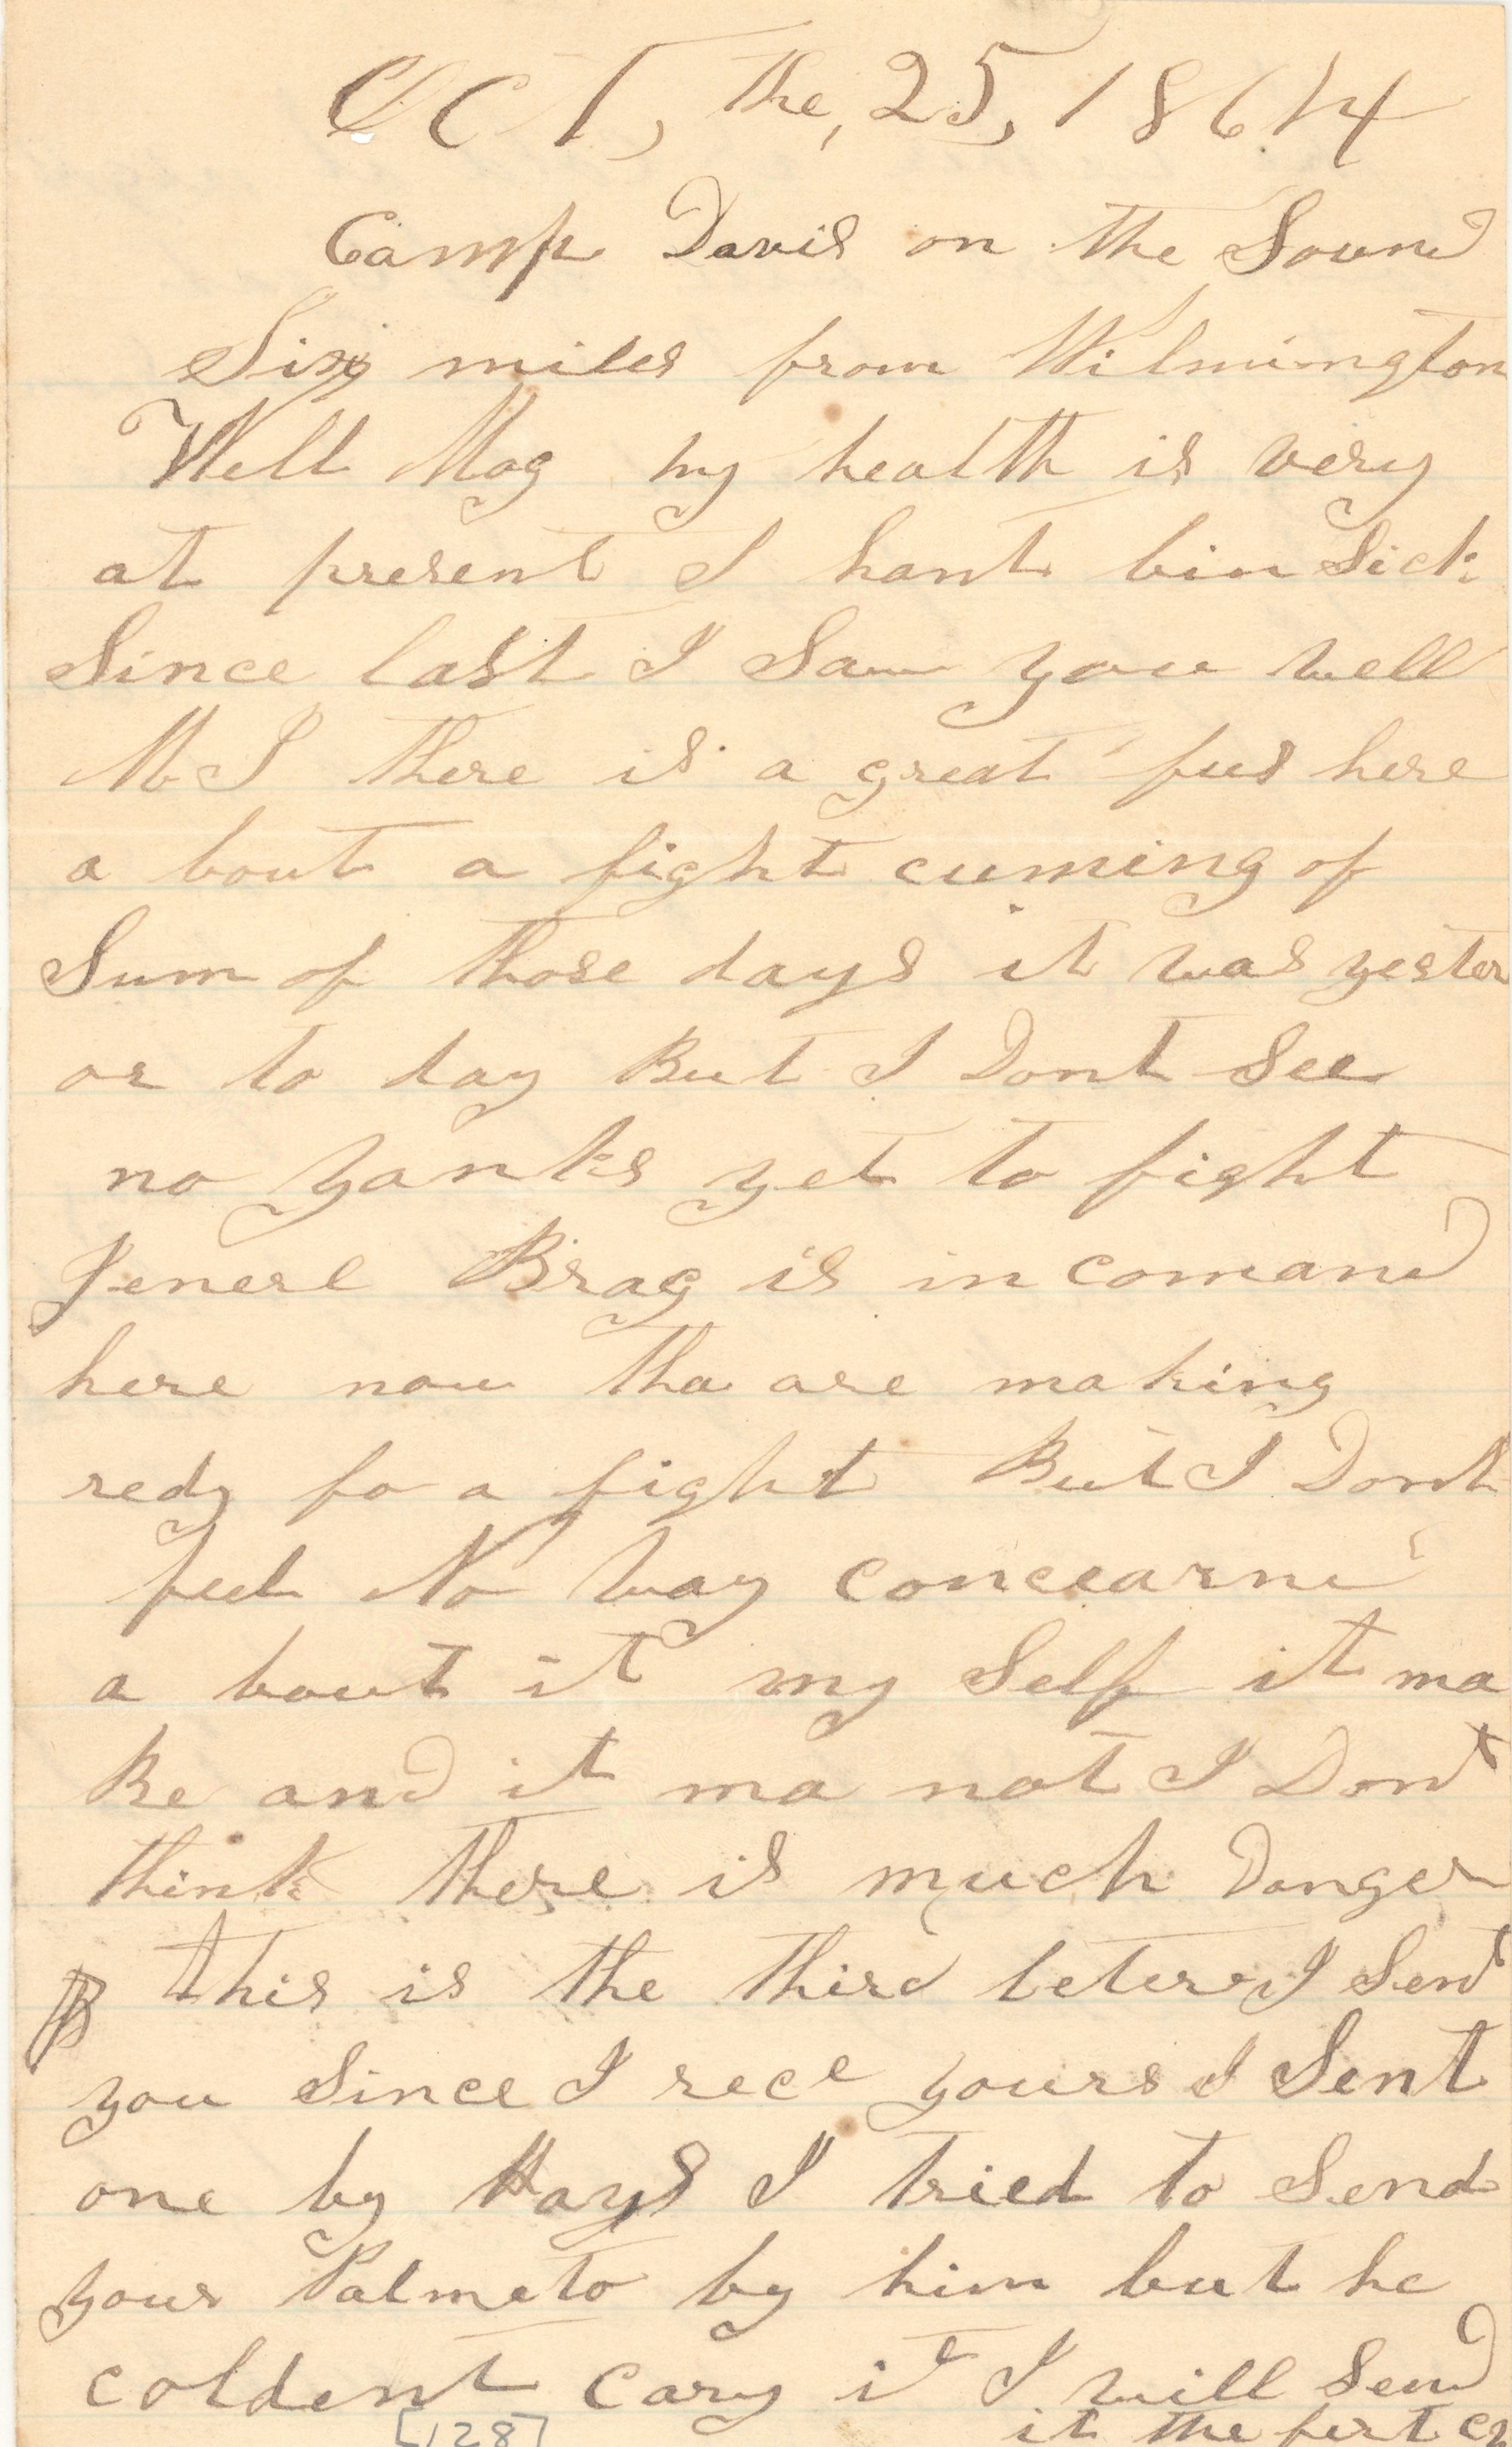 OCT, the, 25, 1864
Camp Davis on the Sound
Six miles from Wilmington
Well Mag my health is very
at present I hant bin Sick
Since last I Saw you well
M J there is a great fus here
a bout a fight cuming of
Sum of those days it was yester
or to day But I Dont See
no yanks yet to fight
Jenerl Brag is in comand
here now tha are making
redy fo a fight But I Dont
feel No way concearnd
a bout it my Self it ma
Be and it ma not I Dont
think there is much Danger
this is the third leter I Sent
you Since I rece yours I Sent
one by Hays I tried to Send
your Palmeto by him but he
coldent Cary it I will Send
it the first
[128]